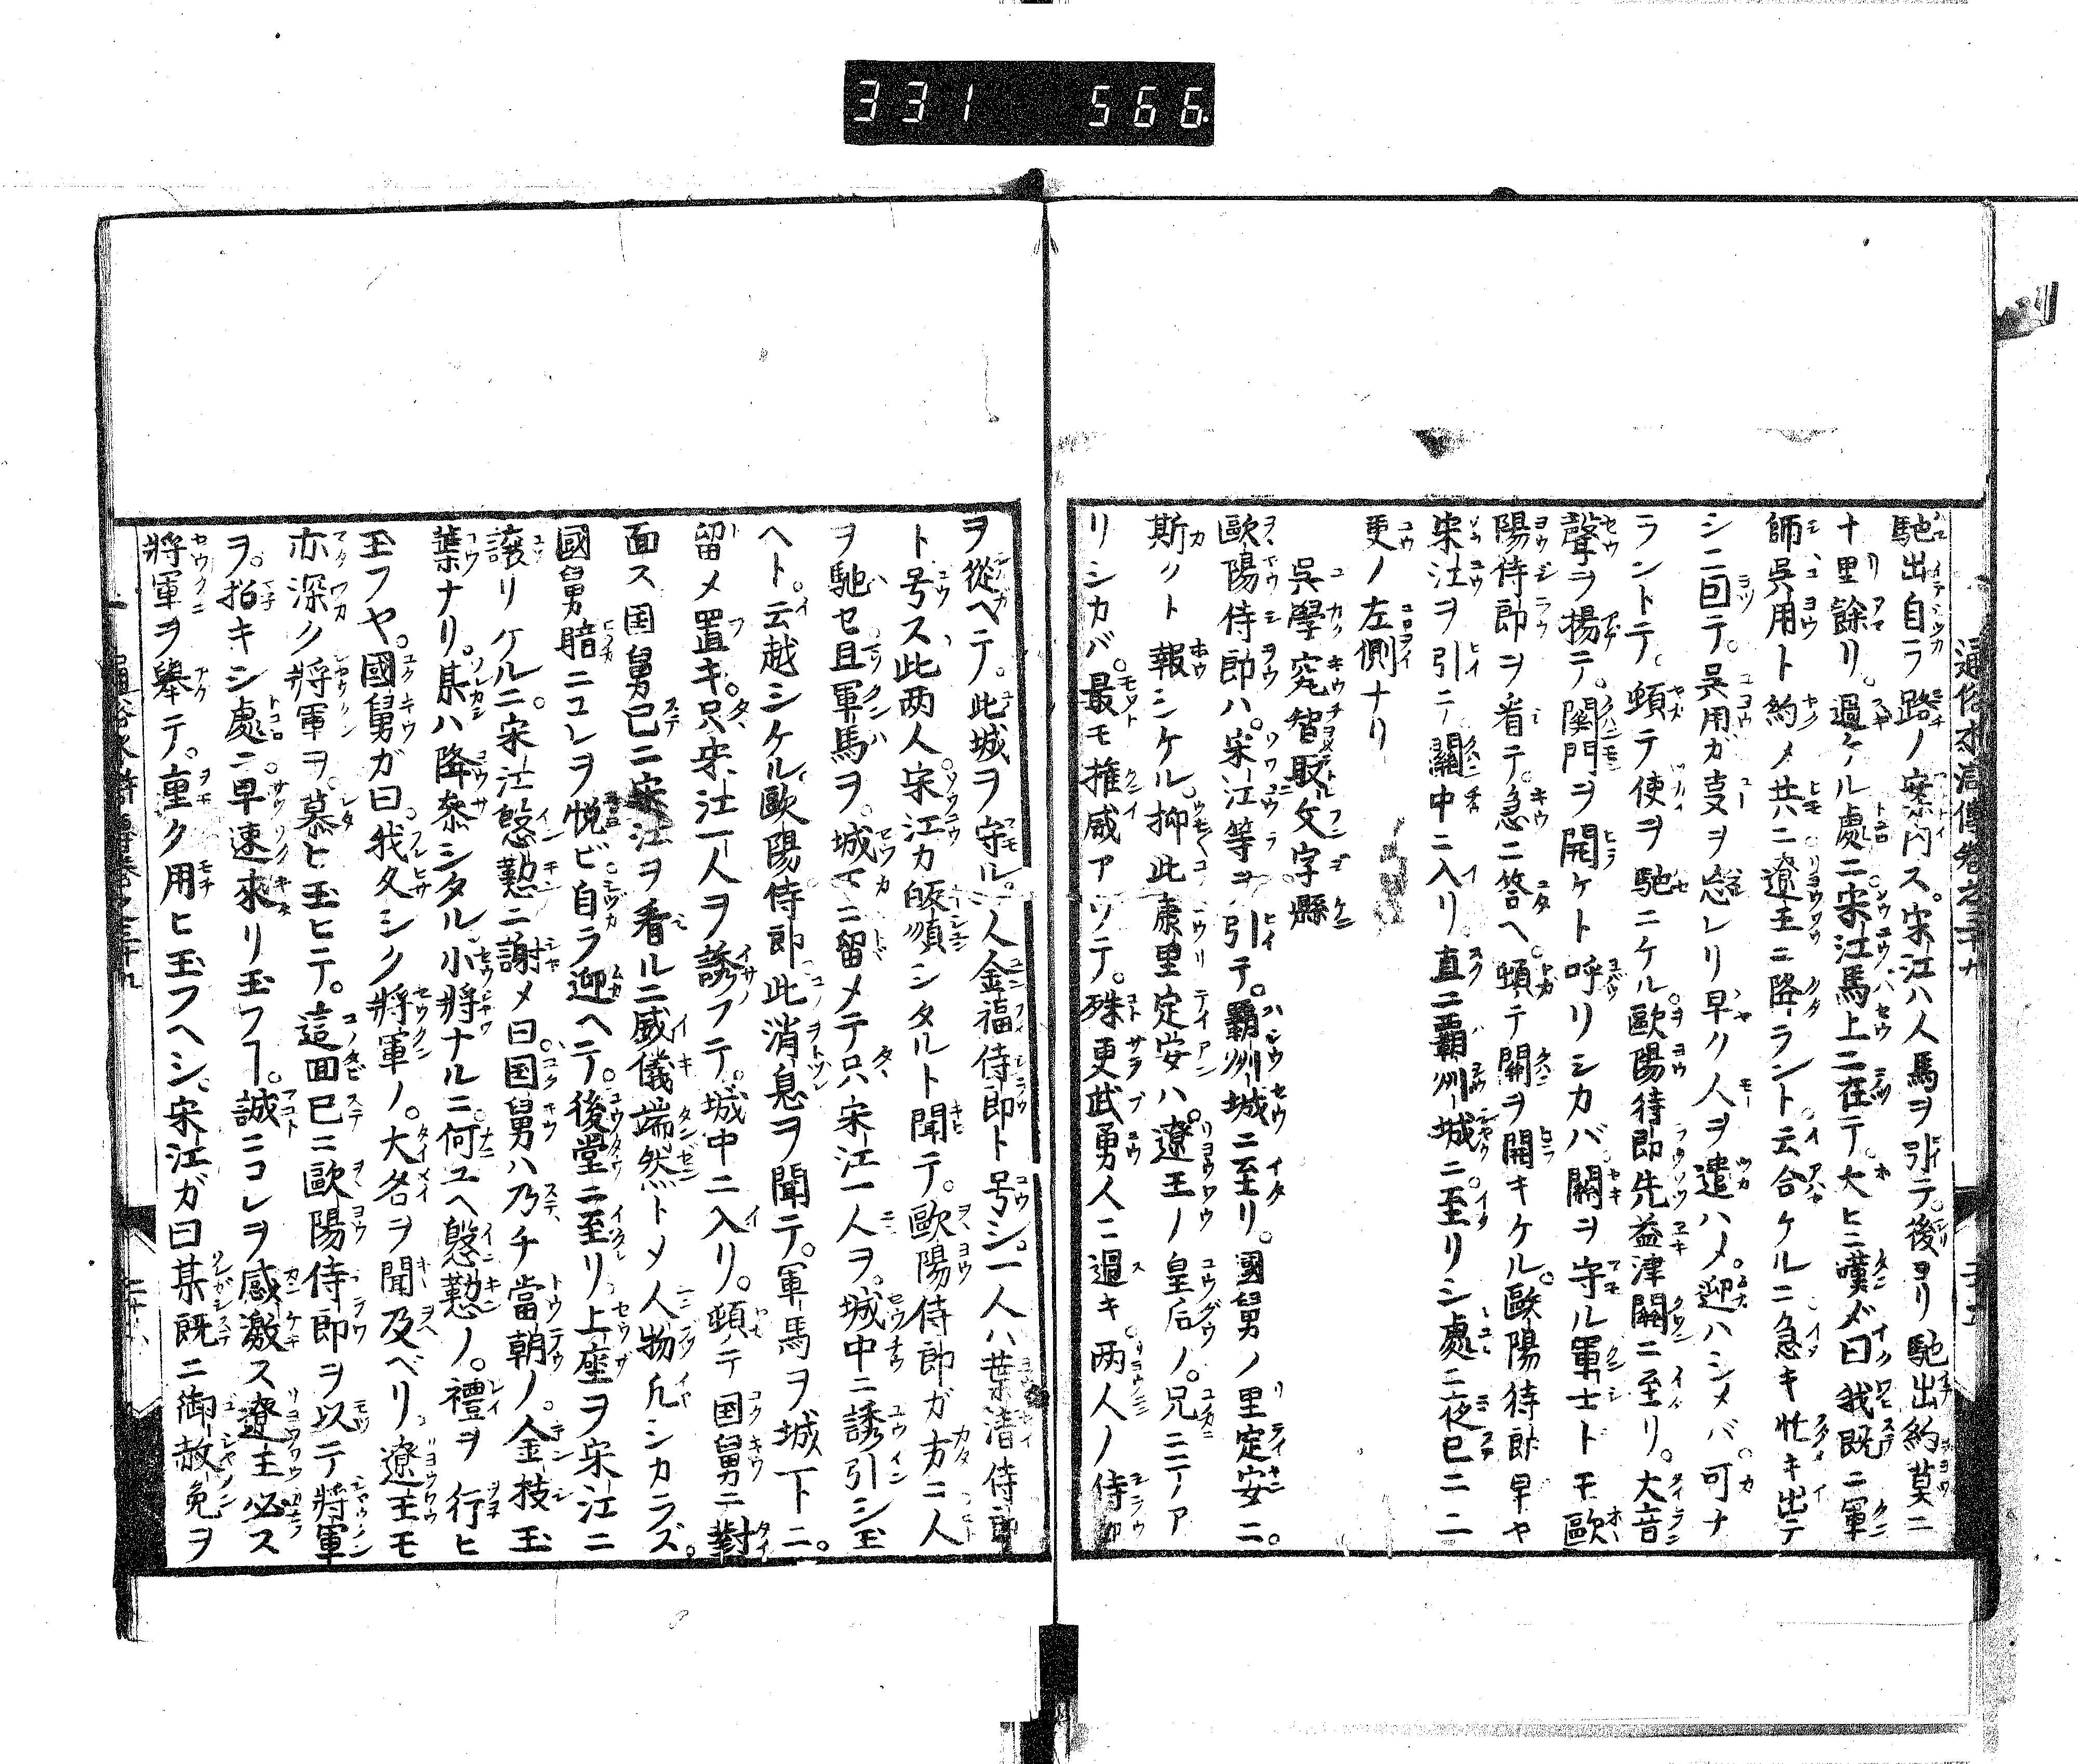 331 566
通俗水滸傳卷之三十九
馳出自ラ路ノ案内ス。宋江ハ人馬ヲ引テ。後ヨリ馳出約莫ニ
十里餘リ。過ケル處ニ宋江馬上ニ在テ。大ヒニ嘆メ曰我既ニ軍
師呉用ト約メ共ニ遼王ニ降ラント云合ケルニ急キ忙キ出テ
シニ回テ。呉用ガ支ヲ忘レリ早ク人ヲ遣ハメ。迎ハシメバ可ナ
ラントテ。頓テ使ヲ馳ニケル歐陽侍郎先益津關ニ至リ。大音
聲ヲ揚テ。関門ヲ開ケト呼リシカバ關ヲ守ル軍士トモ歐
陽侍郎ヲ看テ。急ニ答ヘ。頓テ關ヲ開キケル。歐陽侍郎早ヤ
宋江ヲ引テ關中ニ入リ直ニ覇州城ニ至リシ處ニ夜已ニ二
更ノ左側ナリ
呉學究智取文字縣
歐陽侍郎ハ。宋江等ヲ引テ。覇州城ニ至リ。國舅ノ里定安ニ。
斯クト報シケル。抑此康里定安ハ遼王ノ皇后ノ。兄ニテア
リシカバ。最モ推威アツテ。殊更武勇人ニ過キ。两人ノ侍郎
ヲ從ヘテ。此城ヲ守ル。一人金福侍郎ト号シ。一人ハ葉清侍郎
ト号ス此两人宋江カ皈順シタルト聞テ。歐陽侍郎ガ方ニ人
ヲ馳セ且軍馬ヲ。城下ニ留メテ只宋江一人ヲ。城中ニ誘引シ玉
ヘト。云越シケル歐陽侍郎此消息ヲ聞テ。軍馬ヲ城下ニ。
留メ置キ。只宋江一人ヲ誘フテ。城中ニ入リ。頓テ国舅ニ對
面ス国舅已ニ宋江ヲ看ルニ威儀端然トメ人物凡シカラズ。
國舅暗ニコレヲ悦ビ自ラ迎ヘテ。後堂ニ至リ上座ヲ宋江ニ
譲リケルニ。宋江慇懃ニ謝メ曰国舅ハ乃チ當朝ノ。金枝玉
葉ナリ。某ハ降參シタル小將ナルニ何ユヘ慇懃ノ。禮ヲ行ヒ
玉フヤ。國舅ガ曰。我久シク將軍ノ。大名ヲ聞及ベリ遼王モ
亦深ク將軍ヲ。慕ヒ玉ヒテ。這囬已ニ歐陽侍郎ヲ以テ將軍
ヲ。招キシ處ニ早速來リ玉フヿ。誠ニコレヲ感激ス遼主必ス
將軍ヲ舉テ。重ク用ヒ玉フヘシ。宋江ガ曰某既ニ御赦免ヲ